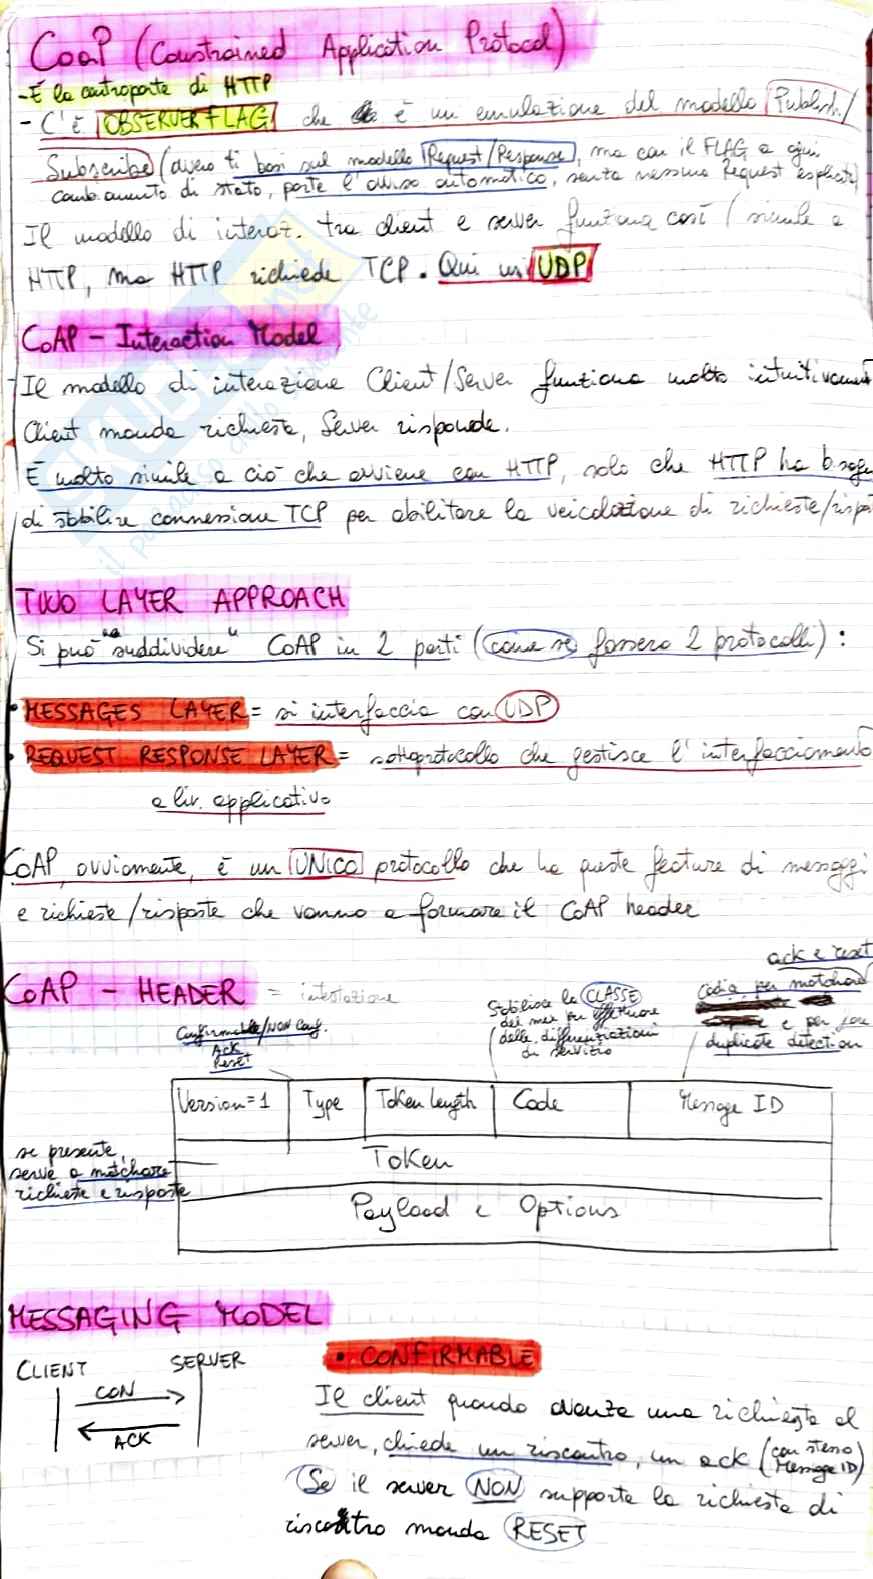 CoaP (Constrained Application Protocol)
- È la controparte di HTTP
- C'è OBSERVER FLAG che è un emulazione del modello Publish/
Subscribe (ovvero ti basi sul modello Request/Response, ma con il FLAG a ogni
cambiamento di stato, parte l'avviso automatico, senza nessuna Request esplicita)
Il modello di interaz. tra client e server funziona così / simile a
HTTP, ma HTTP richiede TCP. Qui usi UDP
CoAP - Interaction Model
Il modello di interazione Client/Server funziona molto intuitivament
Client manda richiesta, Server risponde.
È molto simile a ciò che avviene con HTTP, solo che HTTP ha bisogn
di stabilire connessione TCP per abilitare la veicolazione di richieste/rispost
il paradiso dello studente
TWO LAYER APPROACH
Si può "suddividere" CoAP in 2 parti (come se fossero 2 protocolli):
• MESSAGES LAYER = si interfaccia con UDP
• REQUEST RESPONSE LAYER = sottoprotocollo che gestisce l'interfacciamento
a liv. applicativo
CoAP, ovviamente, è un UNICO protocollo che ha queste feature di messaggi
e richieste/risposte che vanno a formare il CoAP header
CoAP - HEADER = intestazione
Confirmable/NON Conf.
Ack
Reset
Stabilisce la CLASSE
del mex per effettuare
delle differenziazioni
di servizio
ack e reset
Codice per matchare
e per fare
duplicate detection
Version=1 Type Token Length Code Message ID
Token
Payload e Options
se presente,
serve a matchare
richieste e risposte
MESSAGING MODEL
CLIENT SERVER
CON
ACK
• CONFIRMABLE
Il client quando avanza una richiesta al
server, chiede un riscontro, un ack (con stesso Message ID)
Se il server NON supporta la richiesta di
riscontro manda RESET